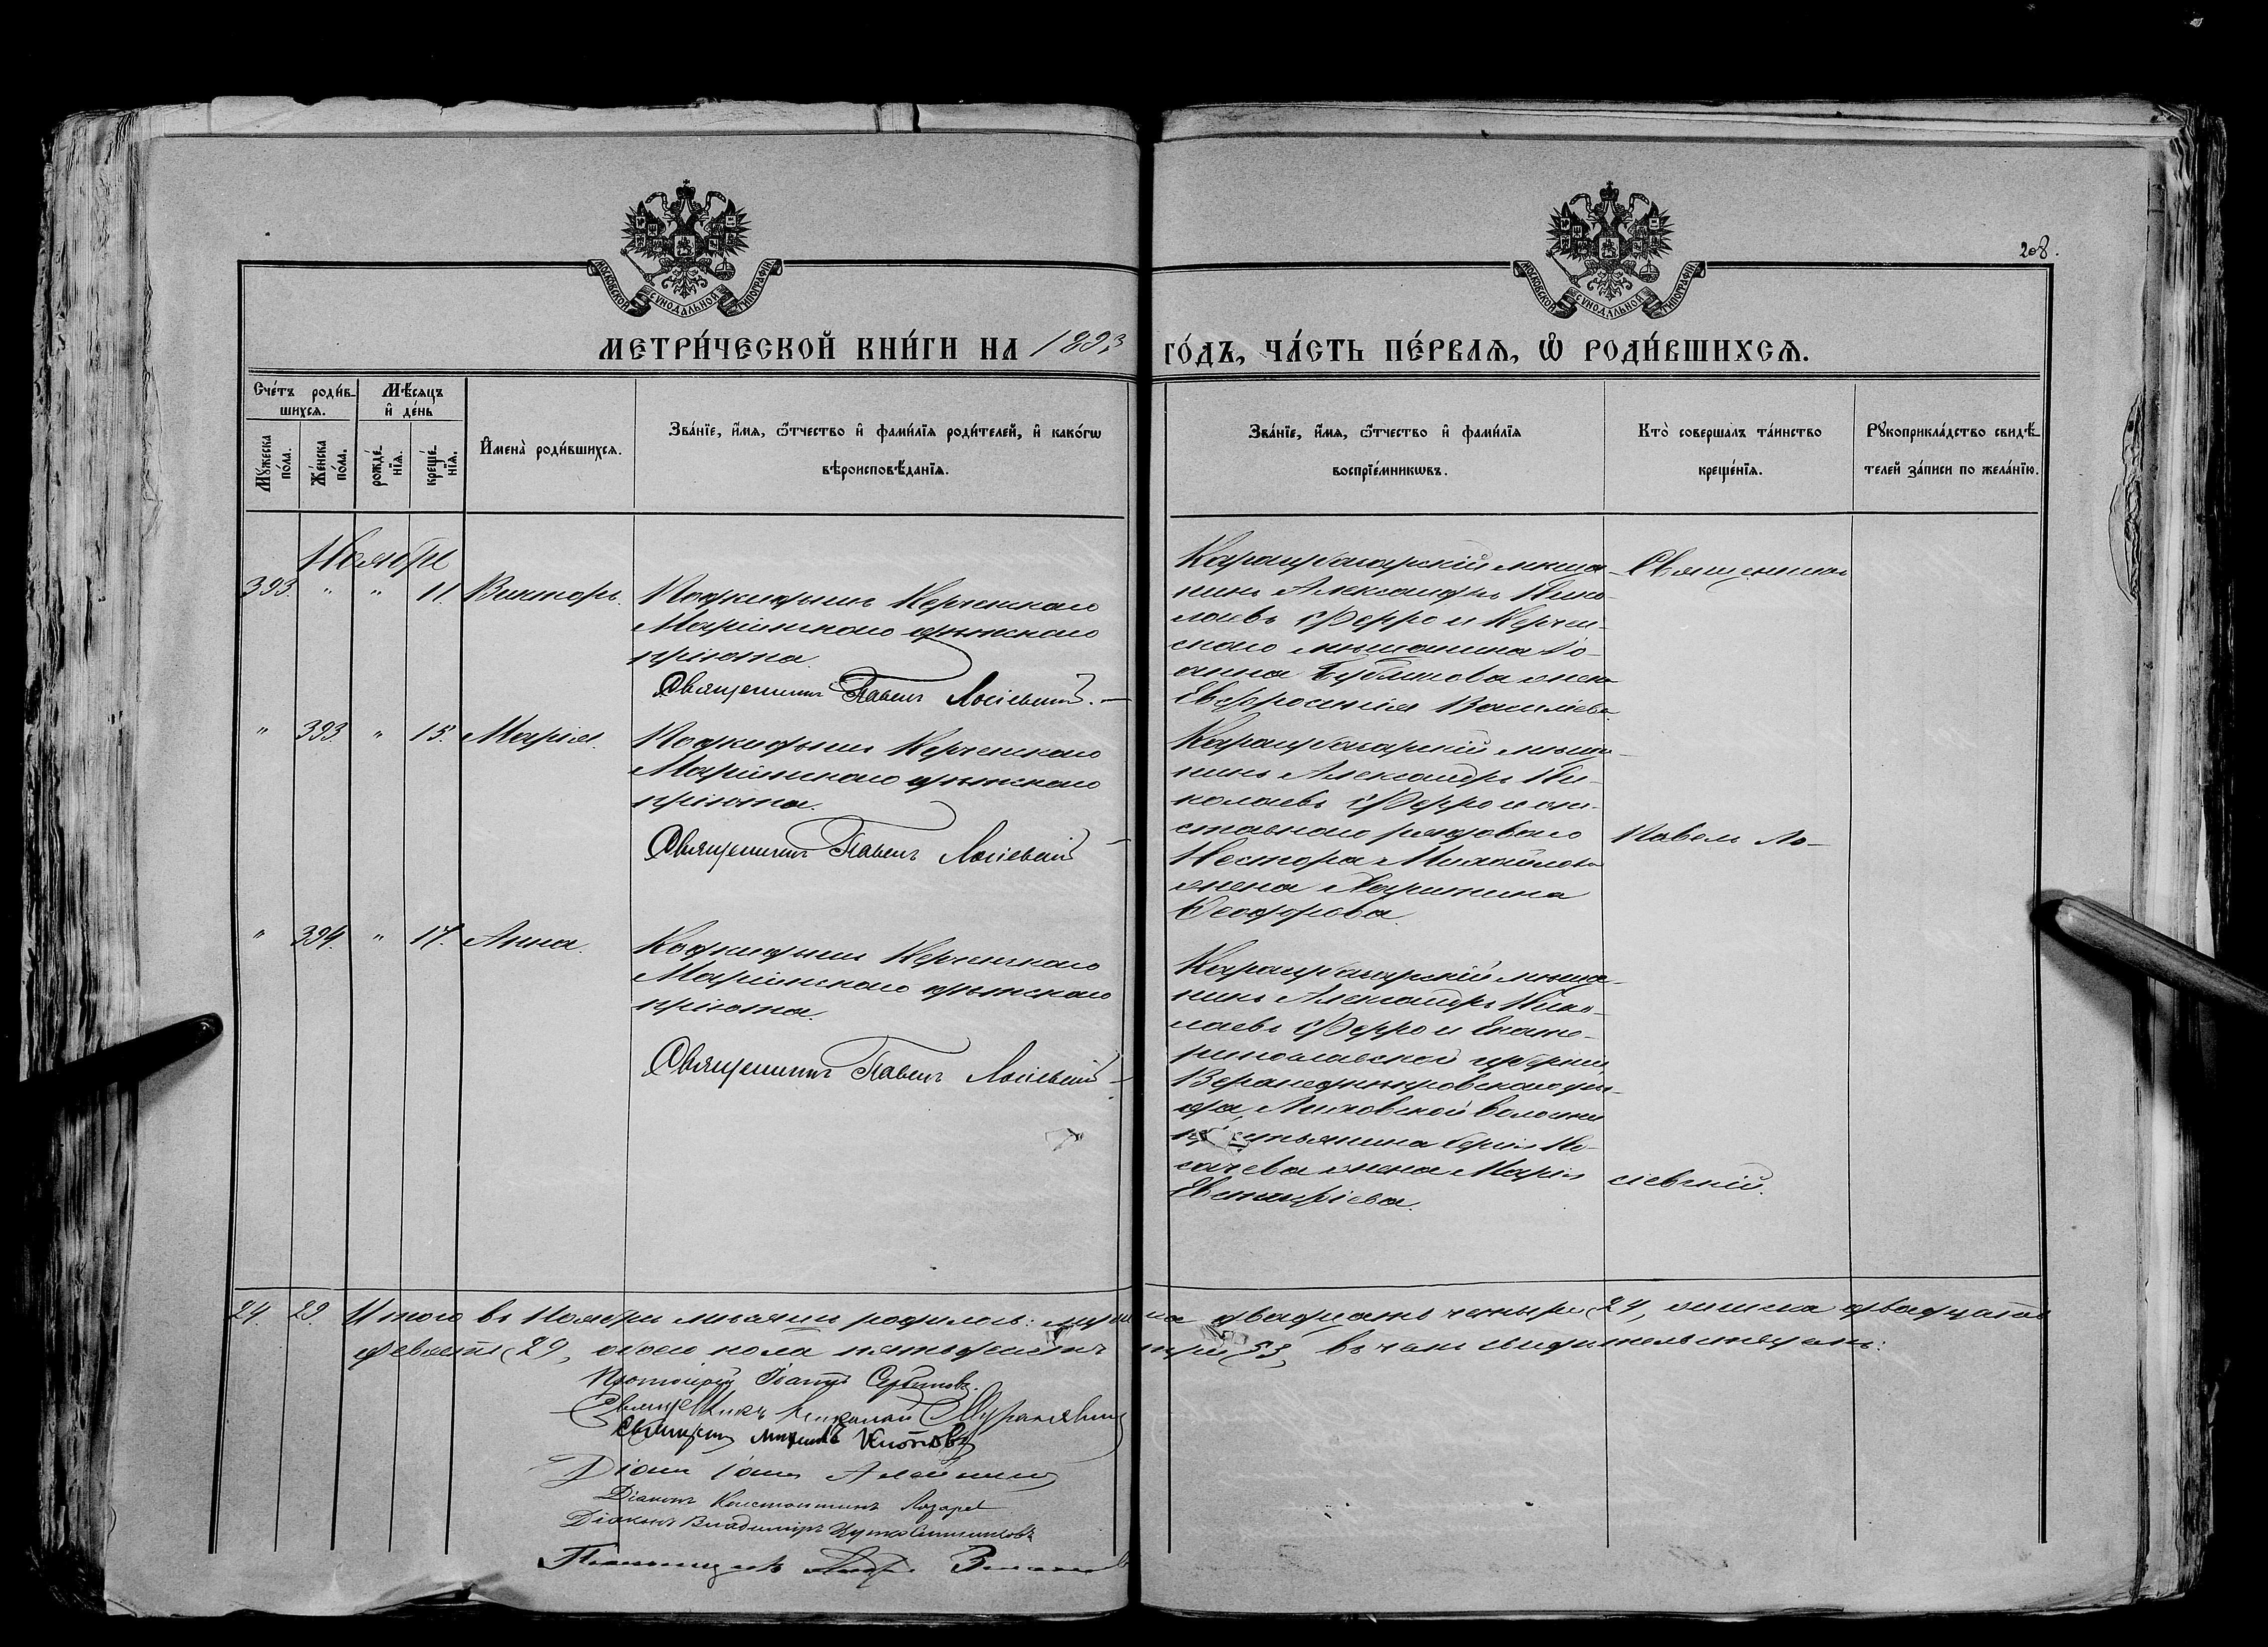 208.
МОСКОВСКОЙ СѴНОДАЛЬНОЙ ТИПОГРАФІИ.
МОСКОВСКОЙ СѴНОДАЛЬНОЙ ТИПОГРАФІИ.
МЕТРИ́ЧЕСКОЙ КНИ́ГИ НА 1893 ГО́ДЪ, ЧА́СТЬ ПЕ́РВАѦ, Ѡ҆ РОДИ́ВШИХСѦ.
Сче́тъ роди́в-
шихсѧ.
Мꙋ́жеска по́ла.
Же́нска по́ла.
Мѣ́сѧцъ
и҆ де́нь
рожде́-
нїѧ.
креще́-
нїѧ.
И҆мена̀ роди́вшихсѧ.
Зва́нїе, и҆́мѧ, ѻ҆́тчество и҆ фами́лїѧ роди́телей, и҆ како́гѡ
вѣроисповѣ́данїѧ.
Зва́нїе, и҆́мѧ, ѻ҆́тчество и҆ фами́лїѧ
воспрїе́мникѡвъ.
Кто̀ соверша́лъ та́инство
креще́нїѧ.
Рꙋкоприкла́дство свидѣ́-
телей за́писи по жела́нїю.
Ноябрь
393. " " 11. Викторъ.
Подкидышъ Керченскаго
Маріинскаго дѣтскаго
пріюта.
Священникъ Павелъ Лосіевскій.
Карасубазарскій мѣща-
нинъ Александръ Нико-
лаевъ Ферро и Керчен-
скаго мѣщанина Іо-
анна жена
Евфросинія Васильева.
Священникъ
" 393. " 15. Марія.
Подкидышъ Керченскаго
Маріинскаго дѣтскаго
пріюта.
Священникъ Павелъ Лосіевскій
Карасубазарскій мѣща-
нинъ Александръ Ни-
колаевъ Ферро и от-
ставного рядового
Нестора Михайлова
жена Харитина
Ѳеодорова.
Павелъ Ло-
" 394. " 17. Анна.
Подкидышъ Керченскаго
Маріинскаго дѣтскаго
пріюта.
Священникъ Павелъ Лосіевскій
Карасубазарскій мѣща-
нинъ Александръ Нико-
лаевъ Ферро и Екате-
ринославской губерніи
Верхнеднѣпровскаго уѣз-
да, Лиховской волости
крестьянина
жена Марія
Евстафіева.
сіевскій.
24. 29. Итого въ Ноябрѣ мѣсяцѣ родилось: мужска двадцать четыре (24, женска двадцать
девять (29, обоего пола пятьдесятъ три (53, въ чемъ свидѣтельствуемъ:
Протоіерей Іоаннъ Сербиновъ.
Священникъ Николай
Священникъ Михаилъ
Діаконъ Іоаннъ
Діаконъ Константинъ Лазаревъ
Діаконъ Владиміръ
Псаломщикъ